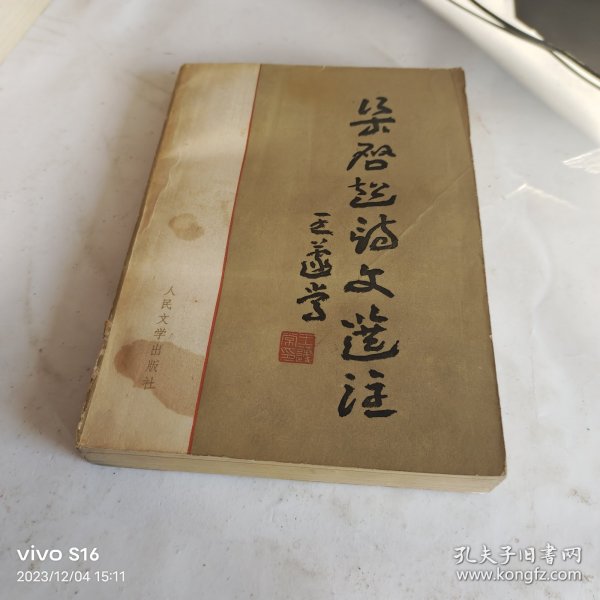 梁启超诗文选注
王蘧常
人民文学出版社
vivo S16
2023/12/04 15:11
孔夫子旧书网
www.kongfz.com